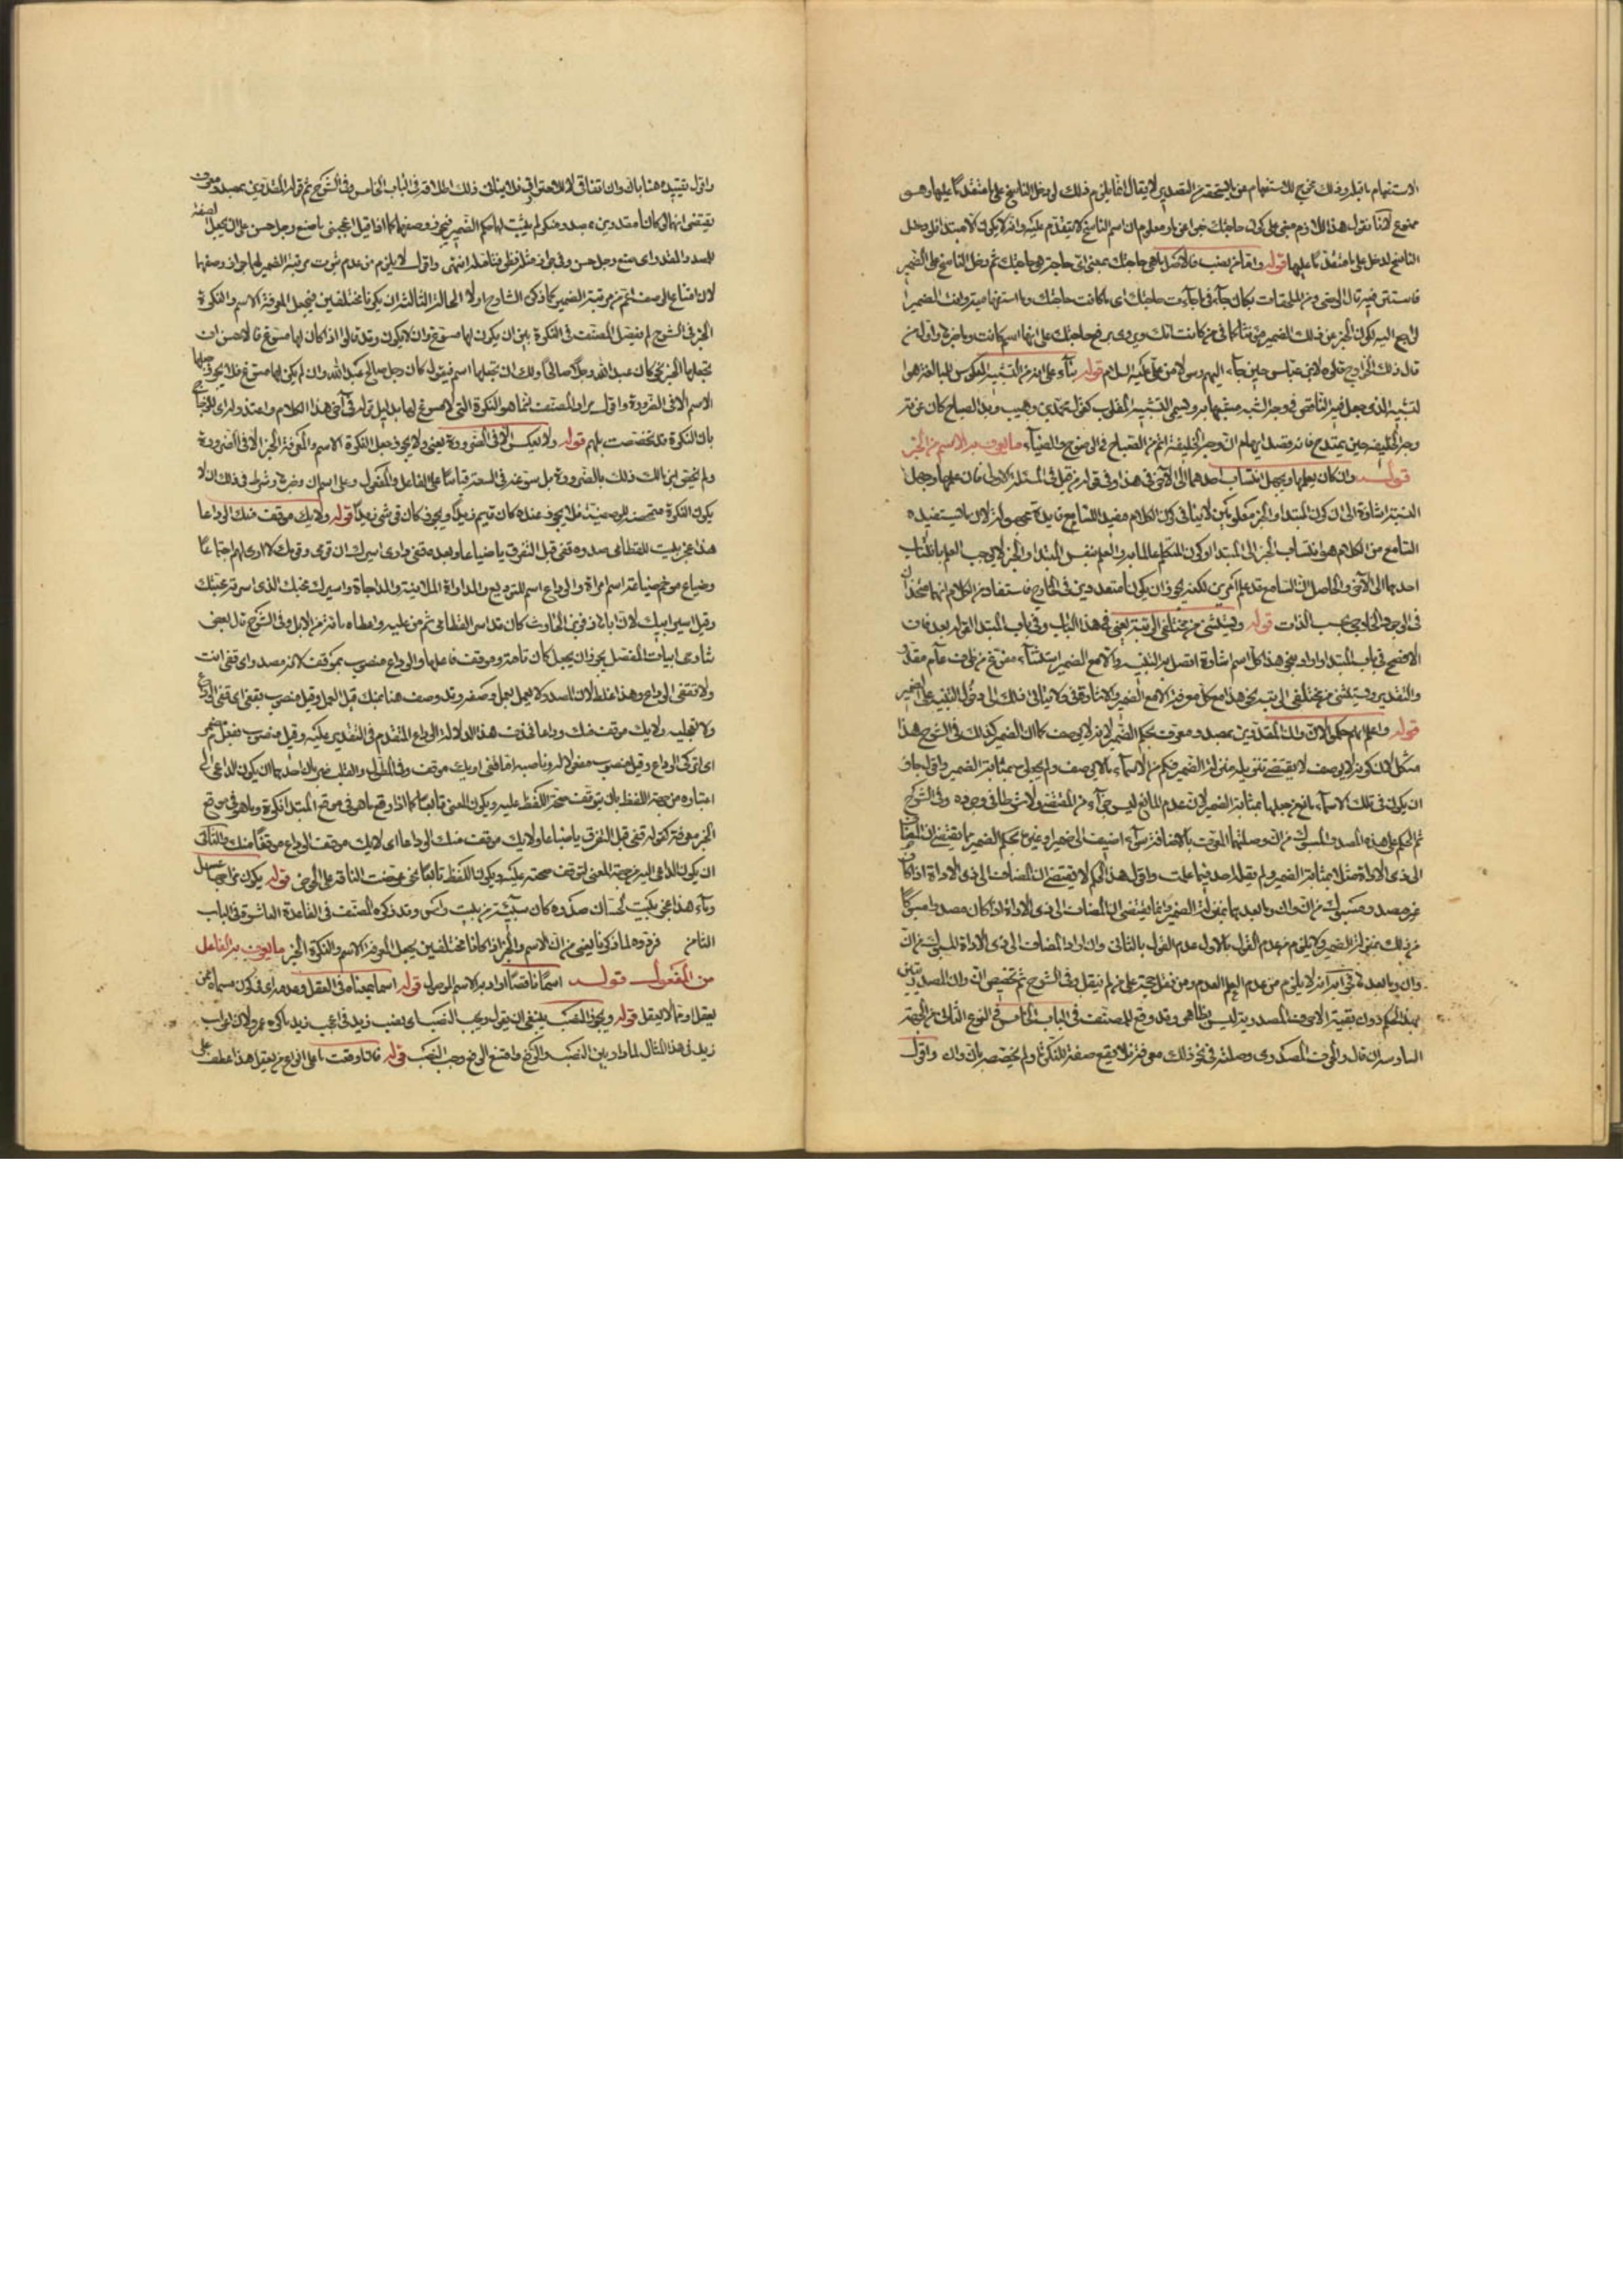 الاستفهام ما قبله وذلك مخرج للاستفهام عن ما يستحقه من التصدير لا يقال انما يلزم ذلك لو دخل الناسخ على ما متقدما عليها وهو
ممنوع لانا نقول هذا اللازم مبني على كون حاجتك خبرا عن ما ومعلوم ان اسم الناسخ لا يتقدم عليه وانه لا يكون الا مبتدا فلو دخل
الناسخ لدخل على ما متقدما عليها قوله واما من نصب فالاصل ما هي حاجتك بمعنى اي حاجة هي حاجتك ثم دخل الناسخ على الضمير
فاستتر فيه قال الرضي ومن الملحقات بكان جاء في ما جاءت حاجتك اي ما كانت حاجتك وما استفهامية وانث الضمير
الراجع اليه لكون الخبر عن ذلك الضمير مؤنثا كما في من كانت امك ويروى برفع حاجتك على انها اسم كانت وما خبره واول من
قال ذلك الخوارج قالوه لابن عباس حين جاء اليهم رسولا من علي عليه السلام قوله بناء على انه من التشبيه المعكوس للمبالغة هو
لتشبيه الذي يجعل فيه الناقص في وجه الشبه مشبها به ويسمى التشبيه المقلوب كقول محمد بن وهيب وبدا الصباح كان غرته
وجه الخليفة حين يمتدح فانه قصد ايهام ان وجه الخليفة اتم من الصباح في الوضوح والضياء ما يعرف به الاسم من الخبر
قوله وان كان يعلمهما ويجهل انتساب احدهما الى الآخر في هذا وفي قوله من قبل في المسئلة الاولى فان علمهما وجهل
النسبة اشارة الى ان كون المبتدا والخبر معلومين لا ينافي كون الكلام مفيدا للسامع فايدة مجهولة لان ما يستفيده
السامع من الكلام هو انتساب الخبر الى المبتدا وكون المتكلم عالما به والعلم بنفس المبتدا والخبر لا يوجب العلم بانتساب
احدهما الى الآخر والحاصل ان السامع قد علم امرين لكنه يجوز ان يكونا متعددين في الخارج فاستفاد من الكلام انهما متحدان
في الوجود الخارجي بحسب الذات قوله ويستثنى من مختلفي الرتبة يعني في هذا الباب وفي باب المبتدا لقوله بعد فان
الافصح في باب المبتدا واراد بنحو هذا كل اسم اشارة اتصل به التنبيه والا مع الضمير استثناء مفرغ من ظرف عام مقدر
والتقدير ويستثنى من مختلفي الرتبة نحو هذا مع كل معرفة الا مع الضمير
قوله واعلم انهم حكموا لان وان المقدرتين بمصدر معرف بحكم الضمير لانه لا يوصف كما ان الضمير كذلك في الشرح هذا
مشكل لان كونه لا يوصف لا يقتضي تنزيله منزلة الضمير فكم من الاسماء ما لا يوصف ولم يجعل بمثابة الضمير واقول جاز
ان يكون في تلك الاسماء مانع من جعلها بمثابة الضمير لان عدم المانع ليس جزءا من المقتضي ولا شرطا في وجوده وفي الشرح
ثم الحكم على هذه المصدر المسبوك من ان وصلتها المعرف بالاضافة سواء اضيف الى ضمير او غيره بحكم الضمير مما يقتضي ان المضاف
الى ذي الاداة مثلا بمثابة الضمير ولم يقله احد فيما علمت واقول هذا الحكم لا يقتضي ان المضاف الى ذي الاداة اذا كان
غير مصدر مسبوك من ان وان وما بعدهما بمنزلة الضمير وانما يقتضي ان المضاف الى ذي الاداة اذا كان مصدرا مسبوكا
من ذلك بمنزلة الضمير ولا يلزم من عدم القول بالاول عدم القول بالثاني وان اراد المضاف الى ذي الاداة المسبوك من ان
وان وما بعدهما لا يلزم من عدم العلم العدم ومن نقل حجة على من لم ينقل وفي الشرح ثم تخصيص ان وان المصدريتين
بهذا الحكم دون بقية الاحرف المصدرية ليس بظاهر وقد وقع للمصنف في الباب الخامس في النوع الثاني من الجهة
السادسة ان قال والحرف المصدري وصلته في نحو ذلك معرفة فلا يقع صفة للنكرة ولم يخصصه بان وان واقول
واقول تقييده هنا بان وان اتفاقي لا للاحتراز فلا ينافي ذلك اطلاقه في الباب الخامس وفي الشرح ثم قوله المقدرتين بمصدر معرف
يقتضي انهما لو كانا مقدرتين بمصدر منكر لم يثبت لهما حكم الضمير فيجوز وصفهما كما اذا قيل اعجبني ما صنع رجل حسن على ان يجعل صفة
للمصدر المقدر اي صنع رجل حسن وفي جواز مثله نظر فتامله انتهى واقول لا يلزم من عدم ثبوت مرتبة الضمير لهما جواز وصفهما
لان امتناع الوصف اعم من مرتبة الضمير كما ذكر الشارح اولا الحالة الثالثة ان يكونا مختلفين فيجعل المعرفة الاسم والنكرة
الخبر في الشرح لم يفصل المصنف في النكرة بين ان يكون لها مسوغ وان لا يكون وقد قالوا اذا كان لها مسوغ فالاحسن ان
تجعلها الخبر نحو كان عبد الله رجلا صالحا ولك ان تجعلها اسم فيقول كان رجل صالح عبد الله وان لم يكن لها مسوغ فلا يجوز جعلها
الاسم الا في الضرورة واقول مراد المصنف انما هو النكرة التي لا مسوغ لها بدليل قوله في آخر هذا الكلام واعتذر
بان النكرة قد تخصصت بلهم قوله ولا يعكس الا في الضرورة يعني ولا يجوز جعل النكرة الاسم والمعرفة الخبر الا في الضرورة
ولم يخص ابن مالك ذلك بالضرورة بل سوغه في السعة قياسا على الفاعل والمفعول وعلى اسم ان وخبرها وشرط في ذلك ان لا
يكون النكرة متمحضة للوصفية فلا يجوز عنده كان قايم زيدا ويجوز كان قرشي زيدا قوله ولا يك موقف منك الوداعا
هذا عجز بيت للقطامي صدره قفي قبل التفرق يا ضباعا وبعده قفي وادي اسيرك ان قومي وقومك لا ارى لهم اجتماعا
وضباع مرخم ضباعة اسم امراة والوداع اسم للتوديع والمداراة الملاينة والمداجاة واسيرك محبك الذي اسرته محبتك
وقيل اسير ابيك لان اباها زفر بن الحارث كان قد اسر القطامي ثم من عليه واعطاه مائة من الابل وفي الشرح قال بعض
شارحي ابيات المفصل يجوز ان يجعل كان تامة وموقف فاعلها والوداع منصوب بموقف لانه مصدر اي قفي انت
ولا تقتفي الوداع وهذا غلط لان المصدر لا يعمل بعمل وصفه وقد وصف هنا بمنك قبل العمل وقيل منصوب بقفي اي قفي الوداع
ولا تعجليه ولا يك موقف منك وداعا فحذف هذا لدلالة الوداع المتقدم في التقدير عليه وقيل منصوب بفعل مضمر
اي اتركي الوداع وقيل منصوب مفعولا له
اعتباره من جهة اللفظ بان يتوقف صحة اللفظ عليه ويكون المعنى تابعا كما اذا وقع ما هو في موقع المبتدا نكرة وما هو في موقع
الخبر معرفة كقوله قفي قبل التفرق يا ضباعا ولا يك موقف منك الوداعا اي لا يك موقف الوداع موقفا منك والثاني
ان يكون الداعي اليه من جهة المعنى لتوقف صحته عليه ويكون اللفظ تابعا نحو عرضت الناقة على الحوض قوله يكون مزاجها عسل
وماء هذا عجز بيت لحسان صدره كان سبيئة من بيت راس وقد ذكره المصنف في القاعدة العاشرة في الباب
الثامن فردوه لما ذكرنا يعني من ان الاسم والخبر اذا كانا مختلفين يجعل المعرفة الاسم والنكرة الخبر ما يعرف به الفاعل
من المفعول قوله اسما ناقصا اراد به الاسم الموصول قوله اسما بمعناه في العقل وعدمه اي في كون مسماه ممن
يعقل او مما لا يعقل قوله ويجوز النصب ينبغي ان يقول ويجب النصب اي نصب زيد في اعجب زيد ما كره عمرو لان اعراب
زيد في هذا المثال لما دار بين النصب والرفع وامتنع الرفع وجب النصب قوله فان اوقعت ما على انواع من يعقل هذا عطف على